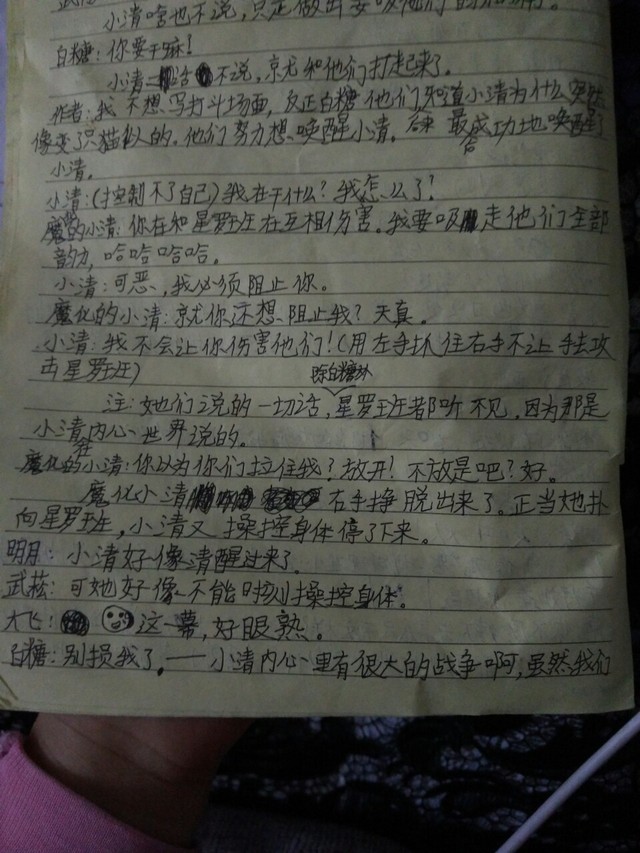 小清啥也不说，只是做出要吸他们的
白糖：你要干嘛！
小清一句话不说，就和他们打起来了。
作者：我不想写打斗场面，反正白糖他们知道小清为什么突然
像变了只猫似的。他们努力想唤醒小清。最后成功地唤醒了
小清。
小清：(控制不了自己)我在干什么？我怎么了？
魔化的小清：你在和星罗班在互相伤害。我要吸走他们全部
韵力，哈哈哈哈。
小清：可恶，我必须阻止你。
魔化的小清：就你还想阻止我？天真。
小清：我不会让你伤害他们！(用左手抓住右手不让手去攻
击星罗班)
除白糖外
注：她们说的一切话，星罗班都听不见，因为那是
小清在内心世界说的。
魔化的小清：你以为你们拉住我？放开！不放是吧？好。
魔化小清右手挣脱出来了。正当她扑
向星罗班，小清又操控身体停了下来。
明月：小清好像清醒过来了。
武崧：可她好像不能时刻操控身体。
大飞：这一幕，好眼熟。
白糖：别损我了。——小清内心里有很大的战争啊，虽然我们